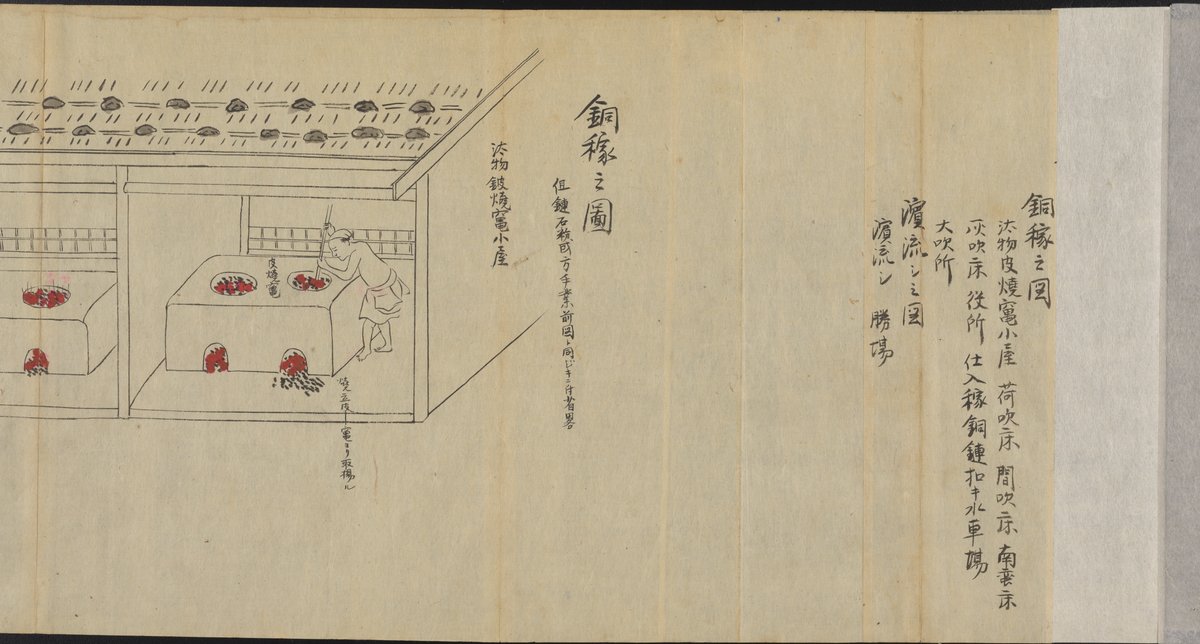 銅稼之図
汰物皮焼竃小屋 荷吹床 間吹床 南蛮床
灰吹床 役所 仕入稼銅鏈扣キ水車場
大吹所
濵流シ之図
濵流シ 勝場
銅稼之圖
但鏈石
方手業前図ト同
ニ付省畧
汰物鈹焼竃小屋
皮焼竃
焼立皮
竃ヨリ取揚ル